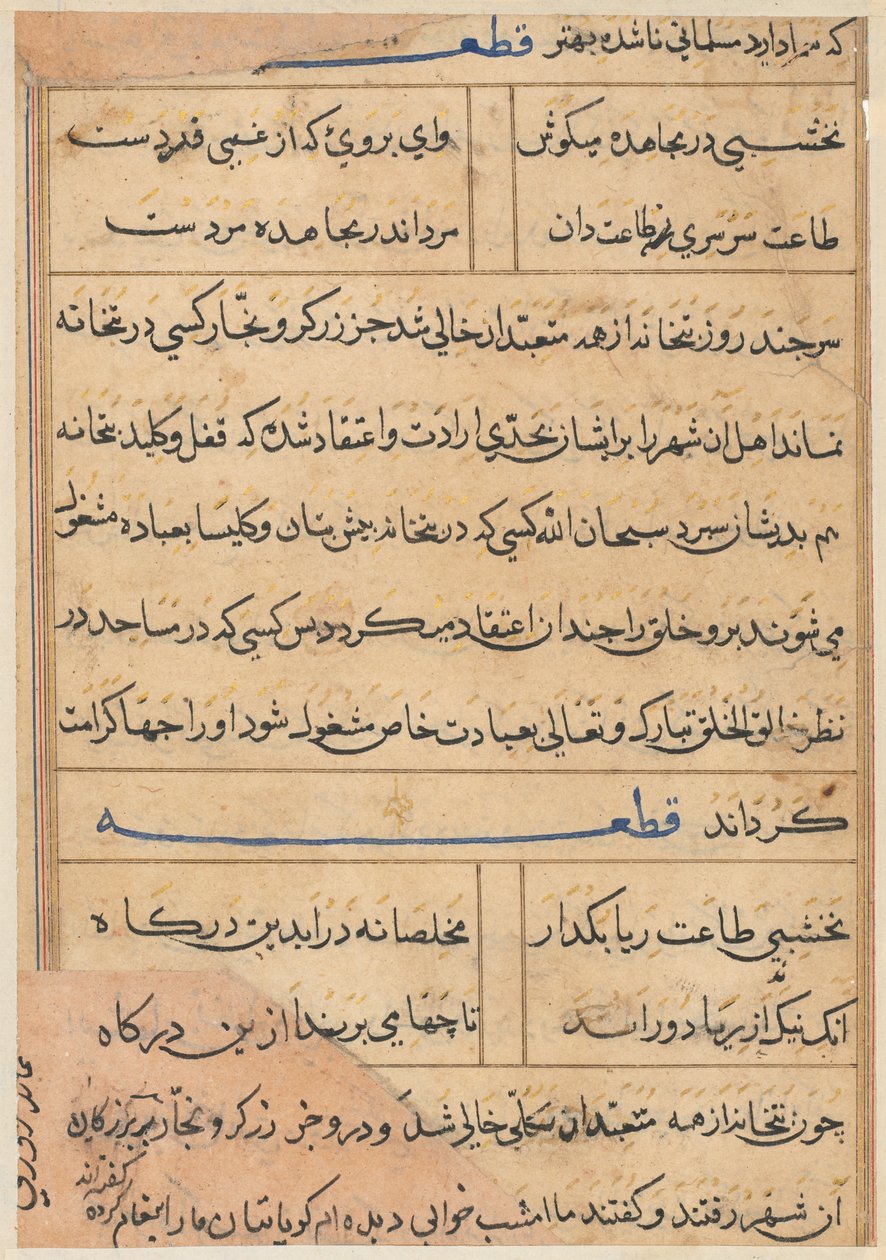 که سزاوارد مسلمانی ناشده بهتر قطعه
نخشبی در مجاهده میکوش وای بروی که از غیبی فردست
طاعت سرسری نه طاعت دان مرد اندر مجاهده مردست
سر چند روز بتخانه از همه متعبّدان خالی شد جز زرکر و نجّار کسی در بتخانه
نماند اهل ان شهر را بر ایشان بحدّی ارادت و اعتقاد شده که قفل و کلید بتخانه
هم بدیشان سبرد سبحان الله کسی که در بتخانه بیش بتان و کلیسا بعباده مشغول
می شوند برو خلق را جندان اعتقاد میکردد بس کسی که در مساجد در
نظر خالق الخلق تبارک و تعالی بعبادت خاص مشغول شود او را جها کرامت
کرداند قطعه
نخشبی طاعت ریا بکدار مخلصانه درا بدین درکاه
انک نیک از ریا دور اند تا چها می برند ازین درکاه
چون بتخانه از همه متعبّدان بکلّی خالی شد و درو جز زرکر و نجّار بر بزرکان
ان شهر رفتند و کفتند ما امشب خوابی دیده ام کویا بتان ما را بیغام کرده
کفته اند